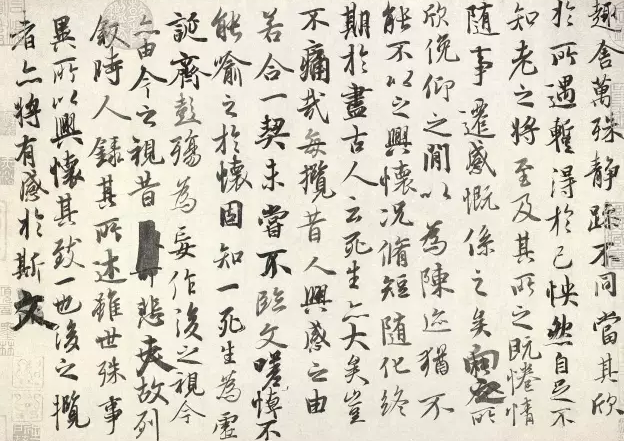 趣舍萬殊静躁不同當其欣
於所遇蹔得於己怏然自足不
知老之將至及其所之既惓情
随事遷感慨係之矣向之所
欣俛仰之閒以為陳迹猶不
能不以之興懷況脩短随化終
期於盡古人云死生亦大矣豈
不痛哉每攬昔人興感之由
若合一契未嘗不臨文嗟悼不
能喻之於懷固知一死生為虛
誕齊彭殤為妄作後之視今
亦由今之視昔悲夫故列
叙時人録其所述雖世殊事
異所以興懷其致一也後之攬
者亦將有感於斯文